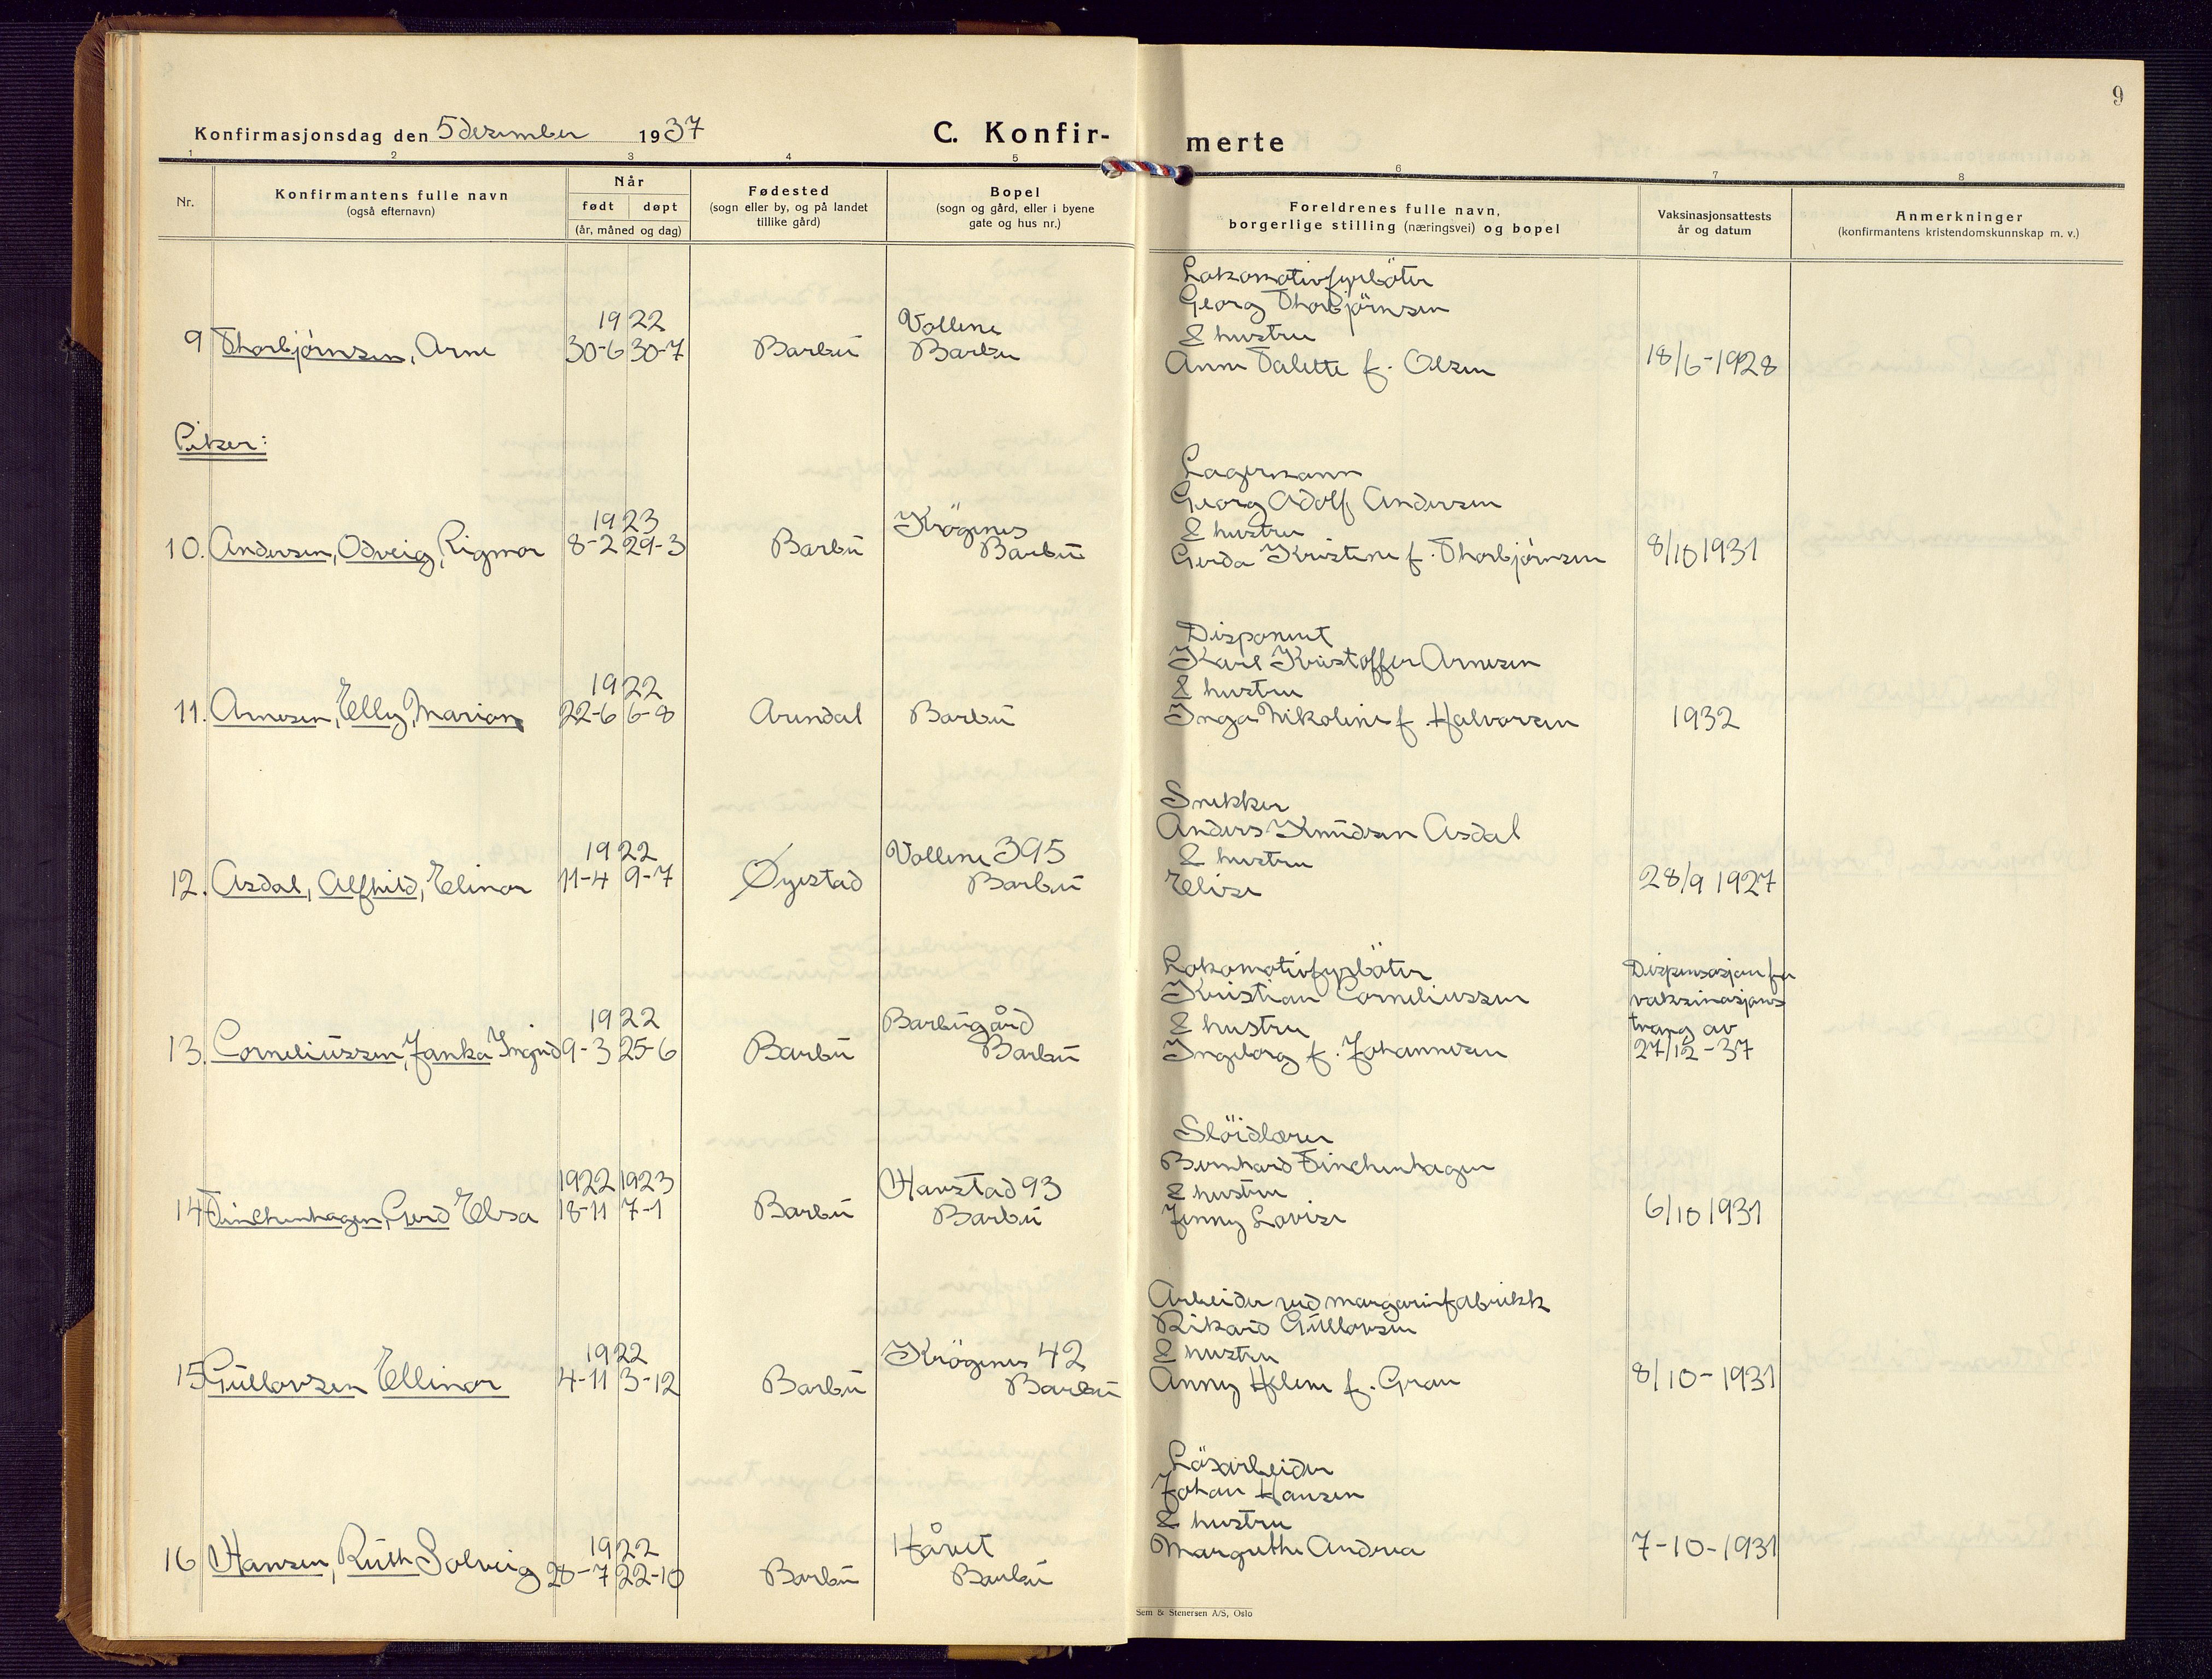 9
Konfirmasjonsdag den 5 desember 1937
C. Konfir-
merte
1 2 3 4 5 6 7 8
Nr.
Konfirmantens fulle navn
(også efternavn)
Når
født døpt
(år, måned og dag)
Fødested
(sogn eller by, og på landet
tillike gård)
Bopel
(sogn og gård, eller i byene
gate og hus nr.)
Foreldrenes fulle navn,
borgerlige stilling (næringsvei) og bopel
Vaksinasjonsattests
år og datum
Anmerkninger
(konfirmantens kristendomskunnskap m. v.)
Lokomotivfyrböter
Georg Thorbjörnsen
1922 Vollene & hustru
9 Thorbjörnsen, Arne 30-6 30-7 Barbu Barbu Anne Talette f. Olsen 18/6-1928
Piker:
Lagermann
Georg Adolf Andersen
1923 Krögenes & hustru
10. Andersen, Odveig, Rigmor 8-2 29-3 Barbu Barbu Gerda Kristine f. Thorbjörnsen 8/10 1931
Disponent
Karl Kristoffer Arnesen
1922 & hustru
11. Arnesen, Elly, Marion 22-6 6-8 Arendal Barbu Inga Nikoline f. Halvorsen 1932
Snekker
Anders Knudsen Asdal
1922 Vollene 395 & hustru
12. Asdal, Alfhild, Elinor 11-4 9-7 Øyestad Barbu Elise 28/9 1927
Lokomotivfyrböter Dispensasjon fra
Kristian Corneliussen vaksinasjons
1922 Barbugård & hustru tvang av
13. Corneliussen, Janka Ingrid 9-3 25-6 Barbu Barbu Ingeborg f. Johannesen 27/12-37
Slöidlærer
Bernhard Finchenhagen
1922 1923 Harstad 93 & hustru
14 Finchenhagen, Gerd Elsa 18-11 7-1 Barbu Barbu Jenny Lovise 6/10 1931
Arbeider ved margarinfabrikk
Rikard Gullovsen
1922 Krögenes 42 & hustru
15 Gullovsen Ellinor 4-11 3-12 Barbu Barbu Anny Helene f. Gran 8/10-1931
Lösarbeider
Johan Hansen
1922 Håvet & hustru
16 Hansen, Ruth Solveig 28-7 22-10 Barbu Barbu Margrethe Andrea 7-10-1931
Sem & Stenersen A/S, Oslo